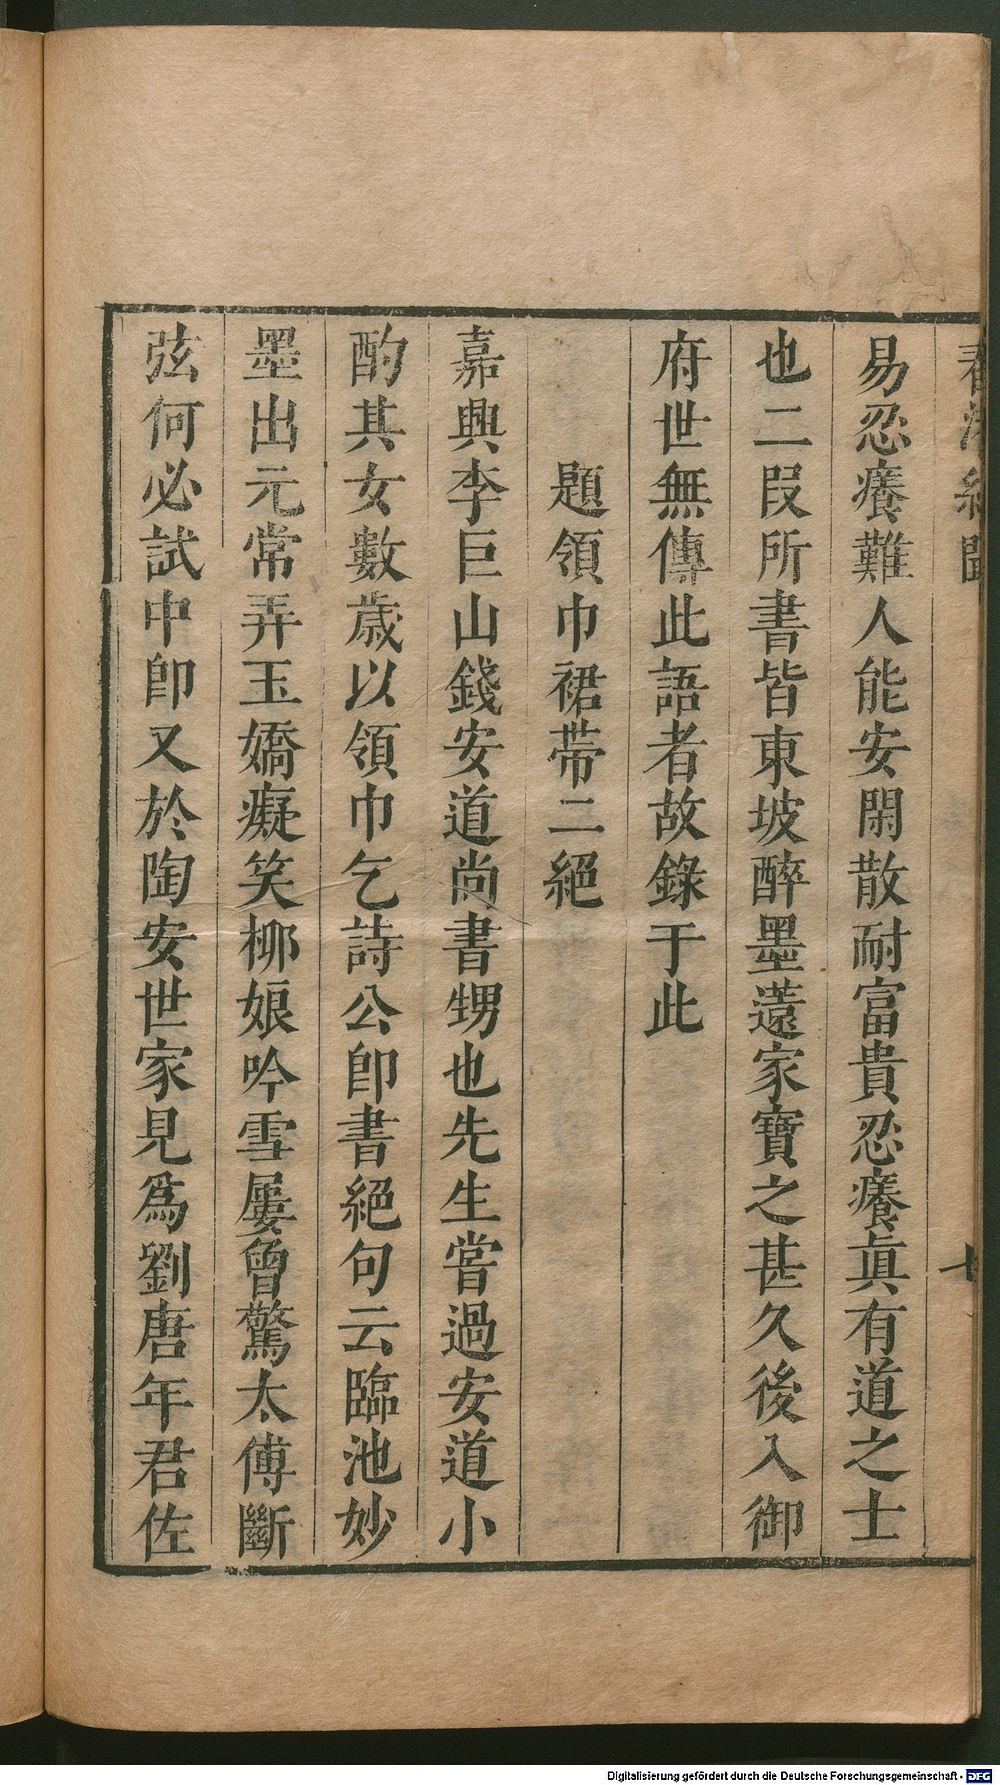 春渚紀聞
七
易忍癢難人能安閑散耐富貴忍癢眞有道之士
也二叚所書皆東坡醉墨薳家寶之甚久後入御
府世無傳此語者故錄于此
題領巾裙帶二絕
嘉興李巨山錢安道尚書甥也先生嘗過安道小
酌其女數歲以領巾乞詩公卽書絕句云臨池妙
墨出元常弄玉嬌癡笑柳娘吟雪屢曾驚太傅斷
弦何必試中郎又於陶安世家見爲劉唐年君佐
Digitalisierung gefördert durch die Deutsche Forschungsgemeinschaft - DFG